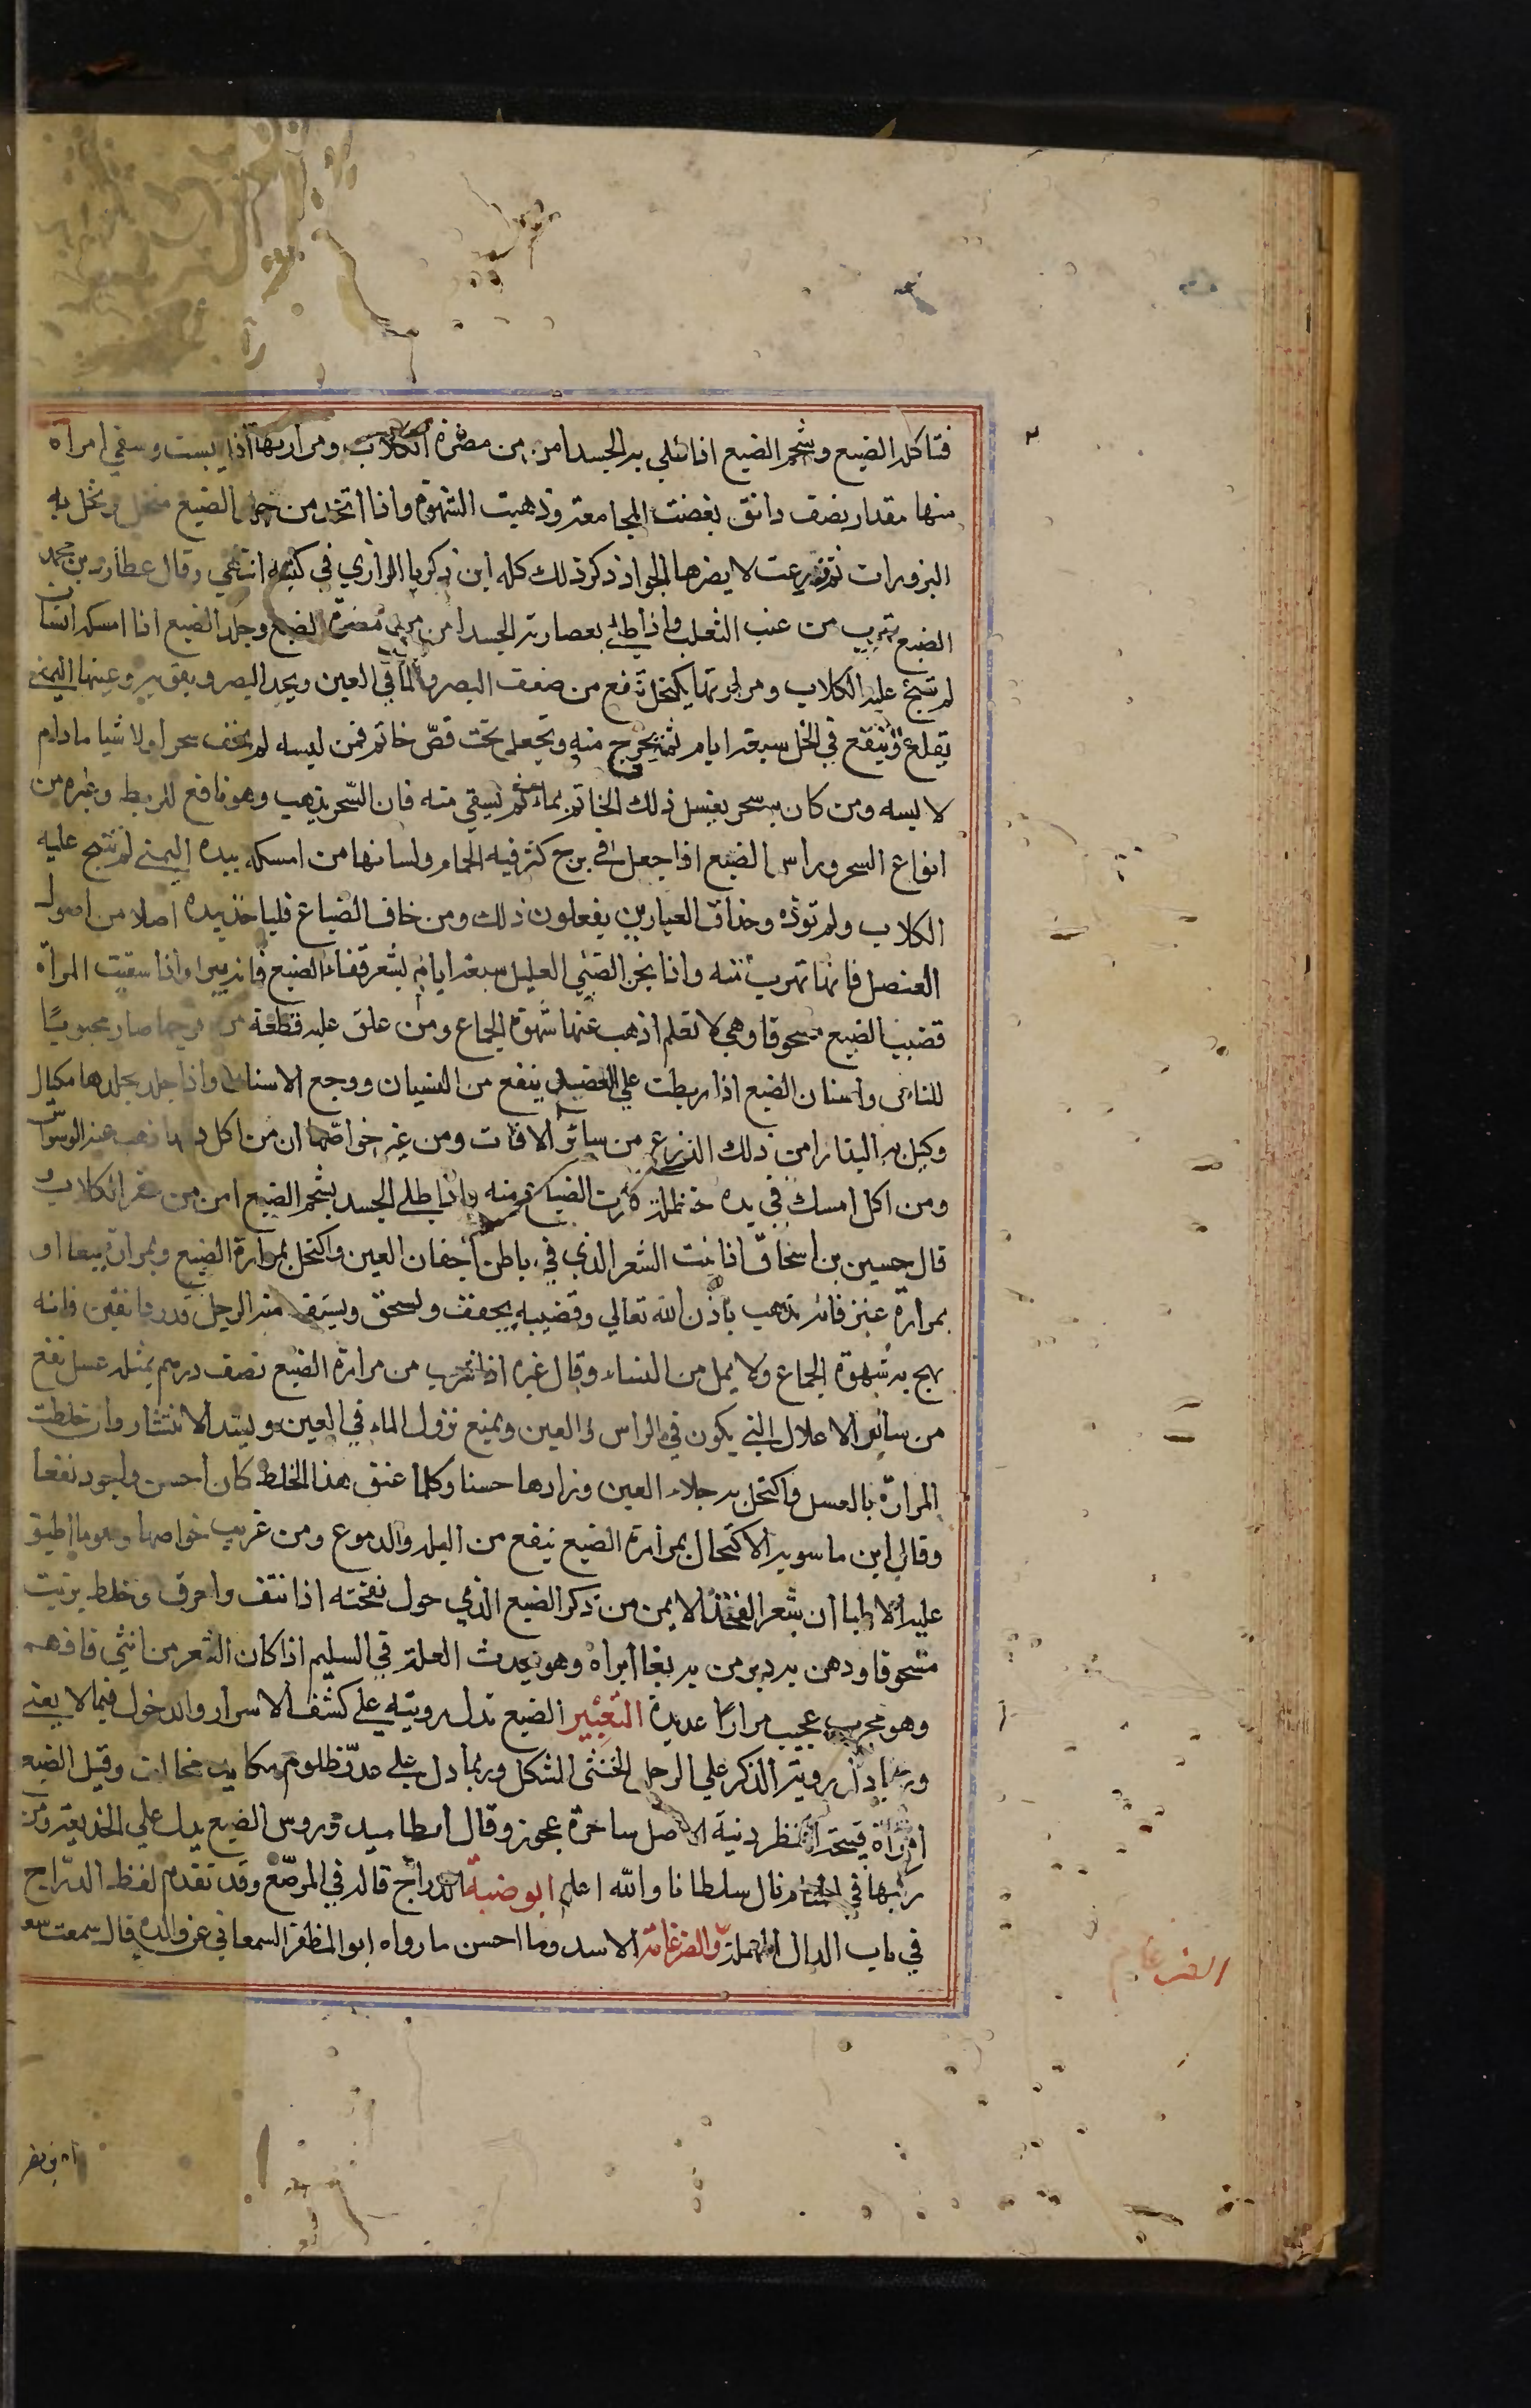 فتأكله الضبع وشحم الضبع اذا طلي به الجسد امن من مضرة الكلاب ومرارتها اذا يبست وسقي امراة
منها مقدار نصف دانق بغضت المجامعة وذهبت الشهوة واذا اتخذ من جلد الضبع منخل ونخل به
البزورات ثم زرعت لا يضرها الجراد ذكر ذلك كله ابن زكريا الرازي في كتبه انتهي وقال عطارد بن محمد
الضبع تهرب من عنب الثعلب واذا طلي بعصارته الجسد امن من مضرة الضبع وجلد الضبع اذا امسكه انسان
لم تنبح عليه الكلاب ومرارتها يكتحل تنفع من ضعف البصر والما في العين ويحد البصر ويقويه وعينها اليمني
تقلع وتنقع في الخل سبعة ايام ثم تخرج منه وتجعل تحت فصّ خاتم فمن لبسه لم يخف سحرا ولا شيا ما دام
لابسه ومن كان به سحر يغسل ذلك الخاتم بماء ثم يسقي منه فان السّحر يذهب وهو نافع للربط وغيره من
انواع السحر وراس الضبع اذا جعل في برج كثر فيه الحمام ولسانها من امسكه بيده اليمني لم تنبح عليه
الكلاب ولم توذه وحذاق العيارين يفعلون ذلك ومن خاف الضباع فلياخذ بيده اصلا من اصول
العنصل فانها تهرب منه واذا بخر الصبي العليل سبعة ايام بشعر قفاء الضبع فانه يبرا واذا سقيت المرأة
قضيب الضبع مسحوقا وهي لا تعلم اذهب عنها شهوة الجماع ومن علق عليه قطعة من فرجها صار محبوبًا
للناس واسنان الضبع اذا ربطت علي العضد ينفع من النسيان ووجع الاسنان واذا جلد بجلدها مكيال
وكيل به البذار امن ذلك الزرع من سائر الافات ومن خواصها ان من اكل دمها ذهب عنه الوسواس
ومن امسك في يده حنظلة فرت الضباع منه واذا طلي الجسد بشحم الضبع امن من عقر الكلاب
قال حسين بن اسحاق اذا نتف الشعر الذي في باطن اجفان العين واكتحل بمرارة الضبع وبمرارة ببغا او
بمرارة عنز فانه يذهب باذن الله تعالي وقضيبه يجفف ويسحق ويستف منه الرجل قدر دانقين فانه
يهج به شهوة الجماع ولا يمل من النساء وقال غيره اذا شرب من مرارة الضبع نصف درهم بمثله عسل نفع
من سائر الاعلال التي يكون في الراس و العين ويمنع نزول الماء في العين ويشد الانتشار وان خلطت
المرارة بالعسل واكتحل به جلاء العين وزادها حسنا وكلما عتق هذا الخلط كان احسن واجود نفعا
وقال ابن ماسويه الاكتحال بمرارة الضبع ينفع من البلة والدموع ومن غريب خواصها وهو ما اطبق
عليه الاطبا ان شعر الفخذ الايمن من ذكر الضبع الذي حول نفخته اذا نتف واحرق وخلط بزيت
مسحوقا ودهن به دبر من به بغا ابراه وهو يحدث العلة في السليم اذا كان الشعر من انثي فافهم
وهو مجرب عجيب مرارا عديدة التعبير الضبع تدل رويته علي كشف الاسرار والدخول فيما لا يعني
وربما دل روية الذكر علي الرجل الخنثي المشكل وربما دل علي عدو ظلوم مكايد مخالف وقيل الضبع
امراة قبيحة المنظر دنية الاصل ساحرة عجوز وقال ارطاميدوروس الضبع يدل علي الخديعة ومن
ركبها في المنام نال سلطانا والله اعلم ابو ضبة الدراج قاله في المرصّع وقد تقدم لفظ الدّراج
في باب الدال المهملة والضرغامة الاسد وما احسن ما رواه ابو المظفر السمعاني عن والده قال سمعت سعد
الضرغام